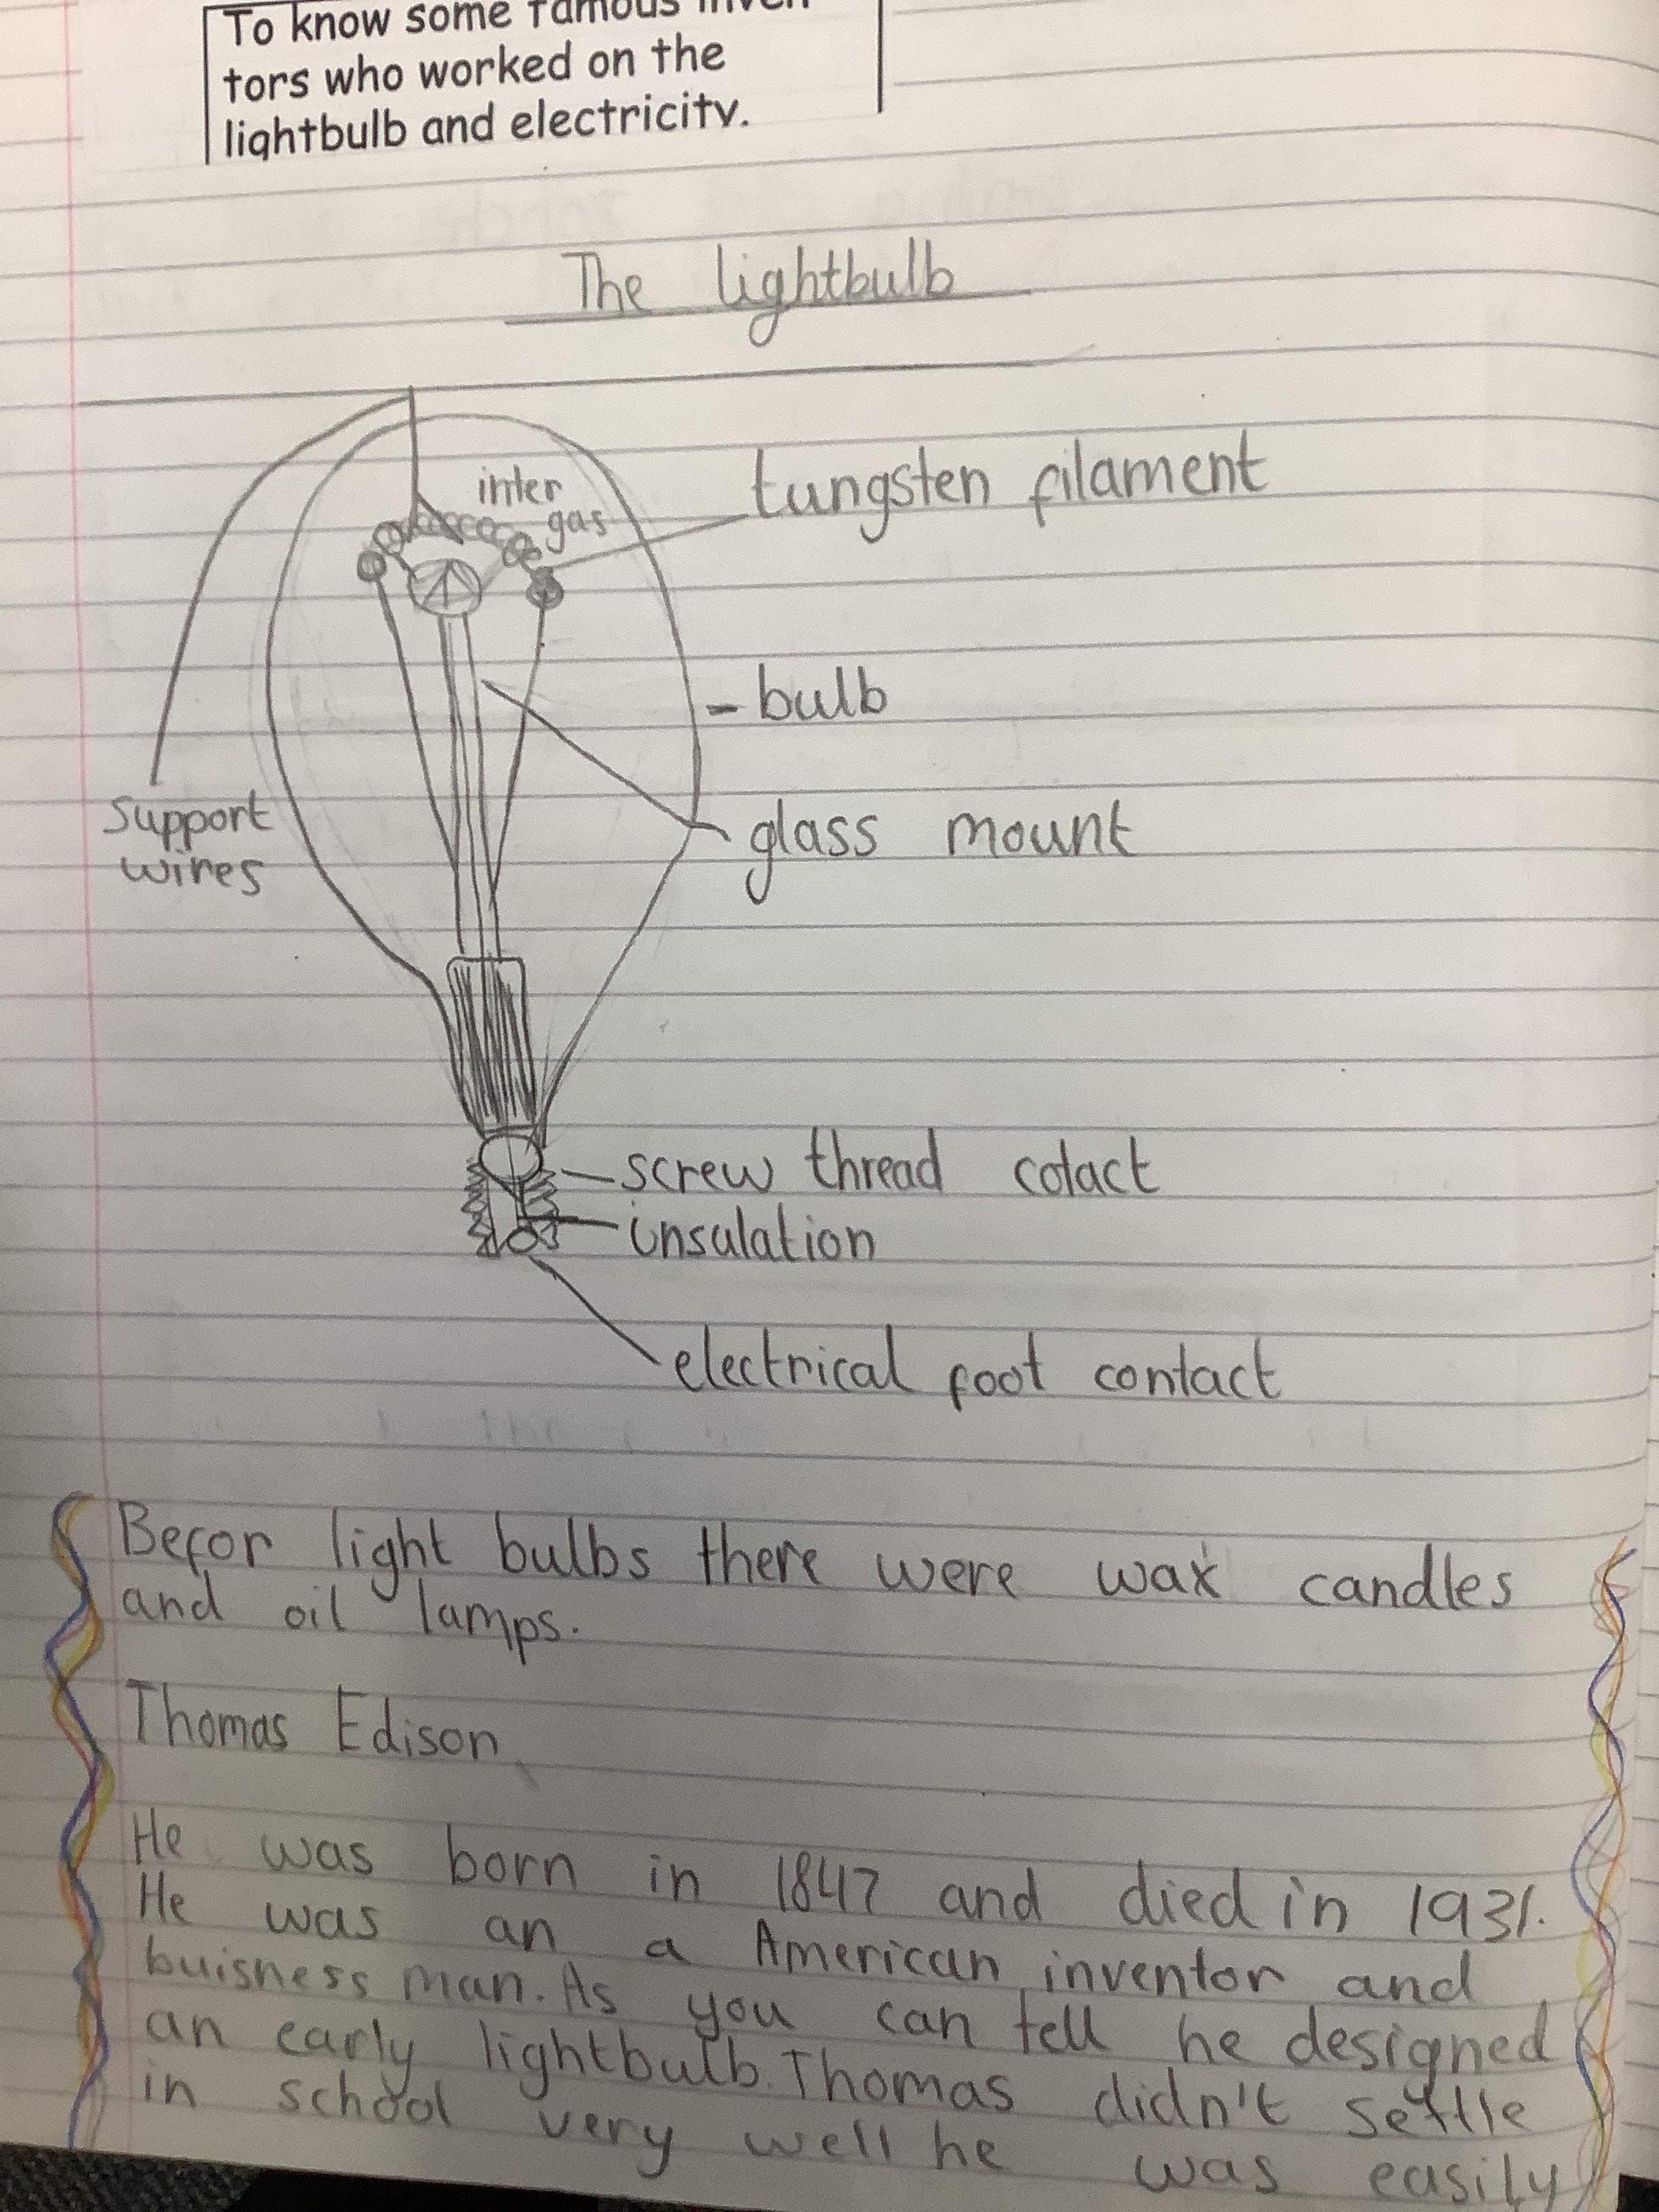 To know some famous inven
tors who worked on the
lightbulb and electricity.
The lightbulb
inter
gas
tungsten filament
- bulb
support
wires
glass mount
screw thread cotact
insulation
electrical foot contact
Befor light bulbs there were wax candles
and oil lamps.
Thomas Edison
He was born in 1847 and died in 1931.
He was an a American inventor and
buisness man. As you can tell he designed
an early lightbulb. Thomas didn't settle
in school very well he was easily